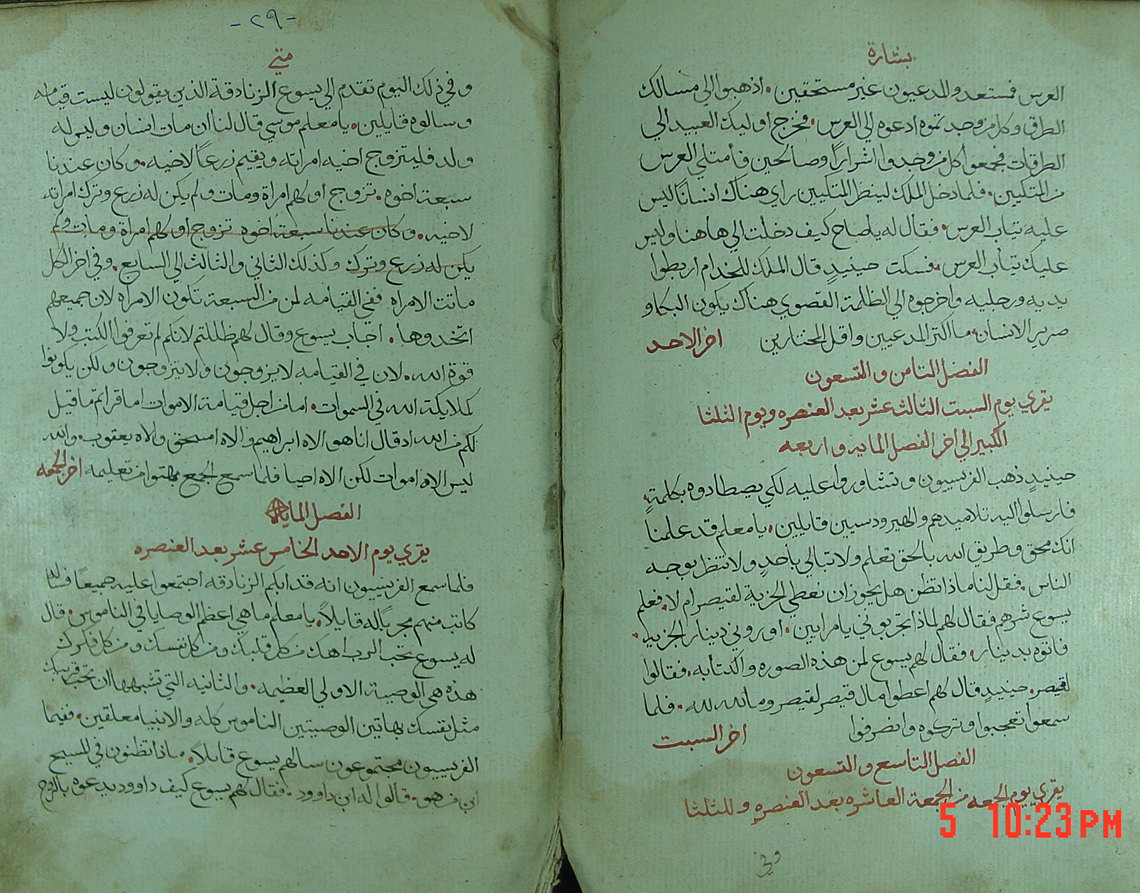 بشارة
العرس فمستعد والمدعيون غير مستحقين. اذهبوا الي مسالك
الطرق وكل من وجدتموه ادعوه الي العرس. فخرج اوليك العبيد الي
الطرقات فجمعوا كل من وجدوا اشرارًا وصالحين فامتلي العرس
من المتكيين. فلما دخل الملك لينظر المتكيين راي هناك انسانًا ليس
عليه تياب العرس. فقال له يا صاح كيف دخلت الي هاهنا وليس
عليك تياب العرس. فسكت حينيدٍ قال الملك للخدام اربطوا
يديه ورجليه واخرجوه الي الظلمة القصوي هناك يكون البكا و
صرير الاسنان. ما اكتر المدعيين واقل المختارين اخر الاحد
الفصل التامن والتسعون
يقري يوم السبت التالت عشر بعد العنصره ويوم الثلثا
الكبير الي اخر الفصل المايه واربعه
حينيدٍ ذهب الفريسيون وتشاوروا عليه لكي يصطادوه بكلمةٍ.
فارسلوا اليه تلاميدهم والهيرودسيين قايلين. يا معلم قد علمنا
انك محق وطريق الله بالحق تعلم ولا تبالي باحدٍ ولا تنظر بوجه
الناس. فقل لنا ماذا تظن هل يجوز ان نعطي الجزية لقيصر ام لا. فعلم
يسوع شرهم فقال لهم لماذا تجربوني يا مرايين. اوروني دينار الجزيه.
فاتوه بدينار. فقال لهم يسوع لمن هذه الصوره والكتابه. فقالوا
لقيصر. حينيدٍ قال لهم اعطوا مال قيصر لقيصر وما لله لله. فلما
سمعوا تعجبوا وتركوه وانصرفوا اخر السبت
الفصل التاسع والتسعون
يقري يوم الجمعه من الجمعة العاشره بعد العنصره وللثلثا
وفي
-٢٩-
متي
وفي ذلك اليوم تقدم الي يسوع الزنادقة الذين يقولون ليست قيامه
وسالوه قايلين. يا معلم موسي قال لنا ان مات انسان وليس له
ولد فليتزوج اخيه امراته ويقيم زرعًا لاخيه. وكان عندنا
سبعة اخوه. تزوج اولهم امراة ومات ولم يكن له زرع وترك امراته
لاخيه. وكان عندنا سبعة اخوه تزوج اولهم امراة ومات ولم
يكن له زرع وترك وكذلك الثاني والثالث الي السابع. وفي اخر الكل
ماتت الامراه ففي القيامه لمن من السبعة تكون الامراه لان جميعهم
اتخدوها. اجاب يسوع وقال لهم ظللتم لانكم لم تعرفوا الكتب ولا
قوة الله. لان في القيامه لا يزوجون ولا يتزوجون ولكن يكونوا
كملايكة الله في السموات. اما من اجل قيامة الاموات اما قراتم ما قيل
لكم من الله اد قال انا هو الاه ابراهيم والاه اسحق والاه يعقوب والله
ليس الاه اموات لكن الاه احيا فلما سمع الجمع بهتوا من تعليمه اخر الجمعه
الفصل المايه
يقري يوم الاحد الخامس عشر بعد العنصره
فلما سمع الفريسيون انه قد ابكم الزنادقه اجتمعوا عليه جميعًا فساله
كاتب منهم مجربًا له قايلاً. يا معلم ما هي اعظم الوصايا في الناموس. قال
له يسوع تحب الرب الاهك من كل قلبك ومن كل نفسك ومن كل فكرك
هذه هي الوصية الاولي العظيمه. والثانيه التي تشبهها ان تحب قريبك
مثل نفسك بهاتين الوصيتين الناموس كله والانبيا معلقين. ففيما
الفريسيون مجتموعون سالهم يسوع قايلاً. ماذا تظنون في المسيح
ابن من هو. قالوا له ابن داوود. فقال لهم يسوع كيف داوود يدعوه بالروح
5 10:23PM